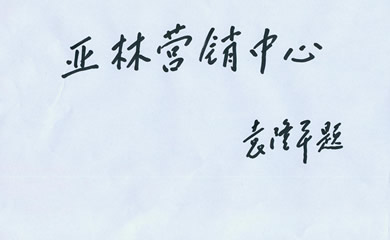 亚林营销中心
袁隆平题